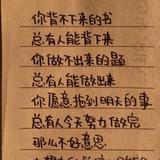 你背不下来的书
总有人能背下来
你做不出来的题
总有人能做出来
你愿意拖到明天的事
总有人今天努力做完
那么不好意思